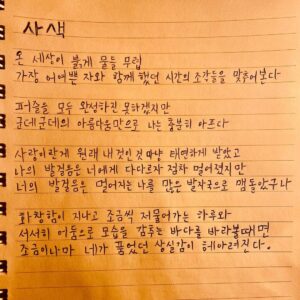 사색
온 세상이 붉게 물들 무렵
가장 어여쁜 자와 함께 했던 시간의 조각들을 맞추어본다
퍼즐을 모두 완성하진 못하겠지만
군데군데의 아름다움만으로 나는 충분히 아프다
사랑이란게 원래 내것이 것 마냥 태연하게 받았고
나의 발걸음은 너에게 다다르자 점차 멀어졌지만
너의 발걸음은 멀어지는 나를 많은 발자국으로 맴돌았구나
화창함이 지나고 조금씩 저물어가는 하루와
서서히 어둠으로 모습을 감추는 바다를 바라볼때면
조금이나마 네가 품었던 상실감이 헤아려진다.